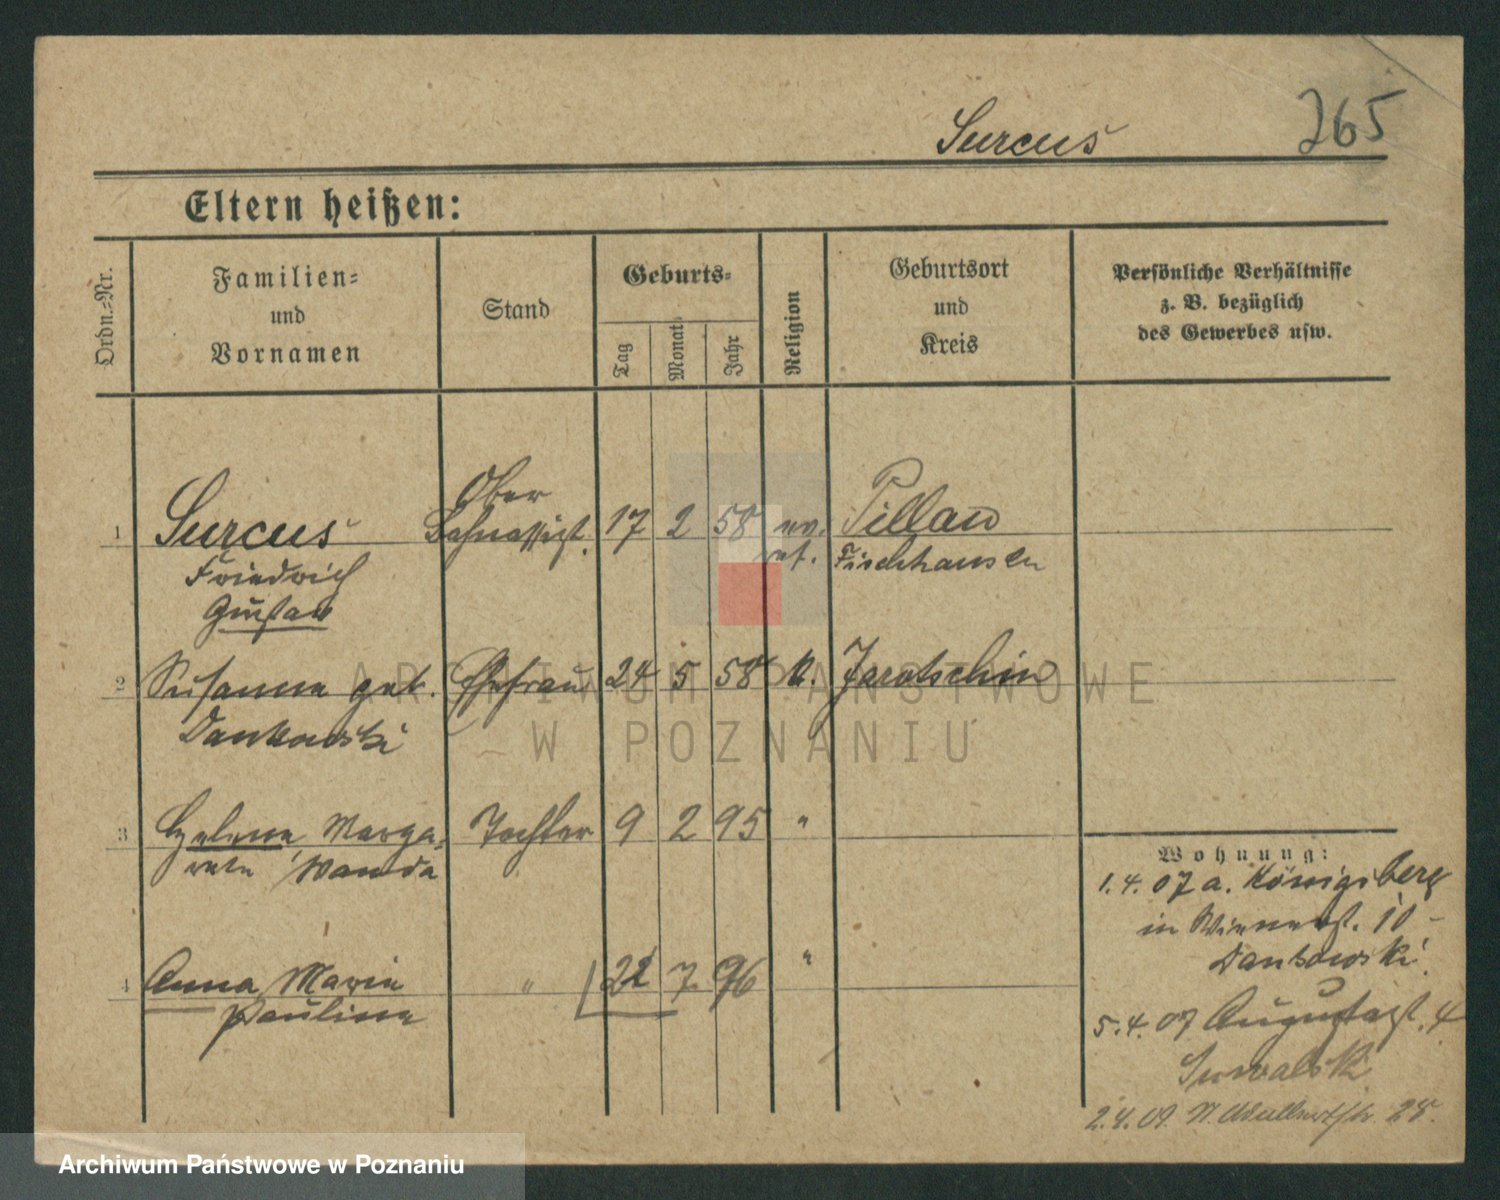 Surcus 265
Eltern heißen:
Ordn.-Nr.
Familien-
und
Vornamen
Stand
Geburts-
Tag
Monat
Jahr
Religion
Geburtsort
und
Kreis
Persönliche Verhältnisse
z. B. bezüglich
des Gewerbes usw.
Ober
1 Surcus Bahnassist. 17 2 58 ev. Pillau
Friedrich ref. Fischhausen
Gustav
2 Susanna geb. Ehefrau 24 5 58 k. Jarotschin
Dankowski
3 Helene Marga- Tochter 9 2 95 "
rete Wanda
4 Anna Marie " 22 7 96 "
Pauline
Wohnung:
1.4.07 a. Königsberg
in Wienerst. 10
Dankowski.
5.4.07 Augustast. 4
Suwalski
2.4.09. 28.
ARCHIWUM PAŃSTWOWE
W POZNANIU
Archiwum Państwowe w Poznaniu